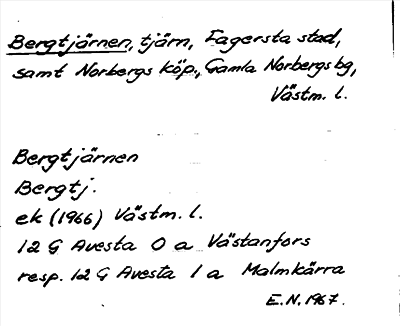 Bergtjärnen, tjärn, Fagersta stad,
samt Norbergs köp., Gamla Norbergs bg,
Västm. l.
Bergtjärnen
Bergtj.
ek (1966) Västm. l.
12 G Avesta 0 a Västanfors
resp. 12 G Avesta 1 a Malmkärra
E.N. 1967.